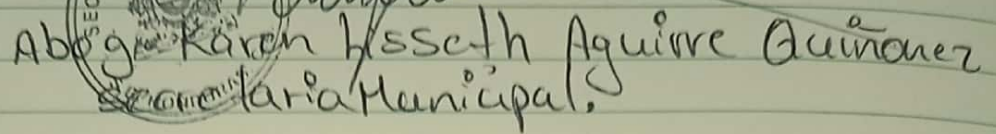 Abog. Karen Lisseth Aguirre Quiñonez
Secretaria Municipal.